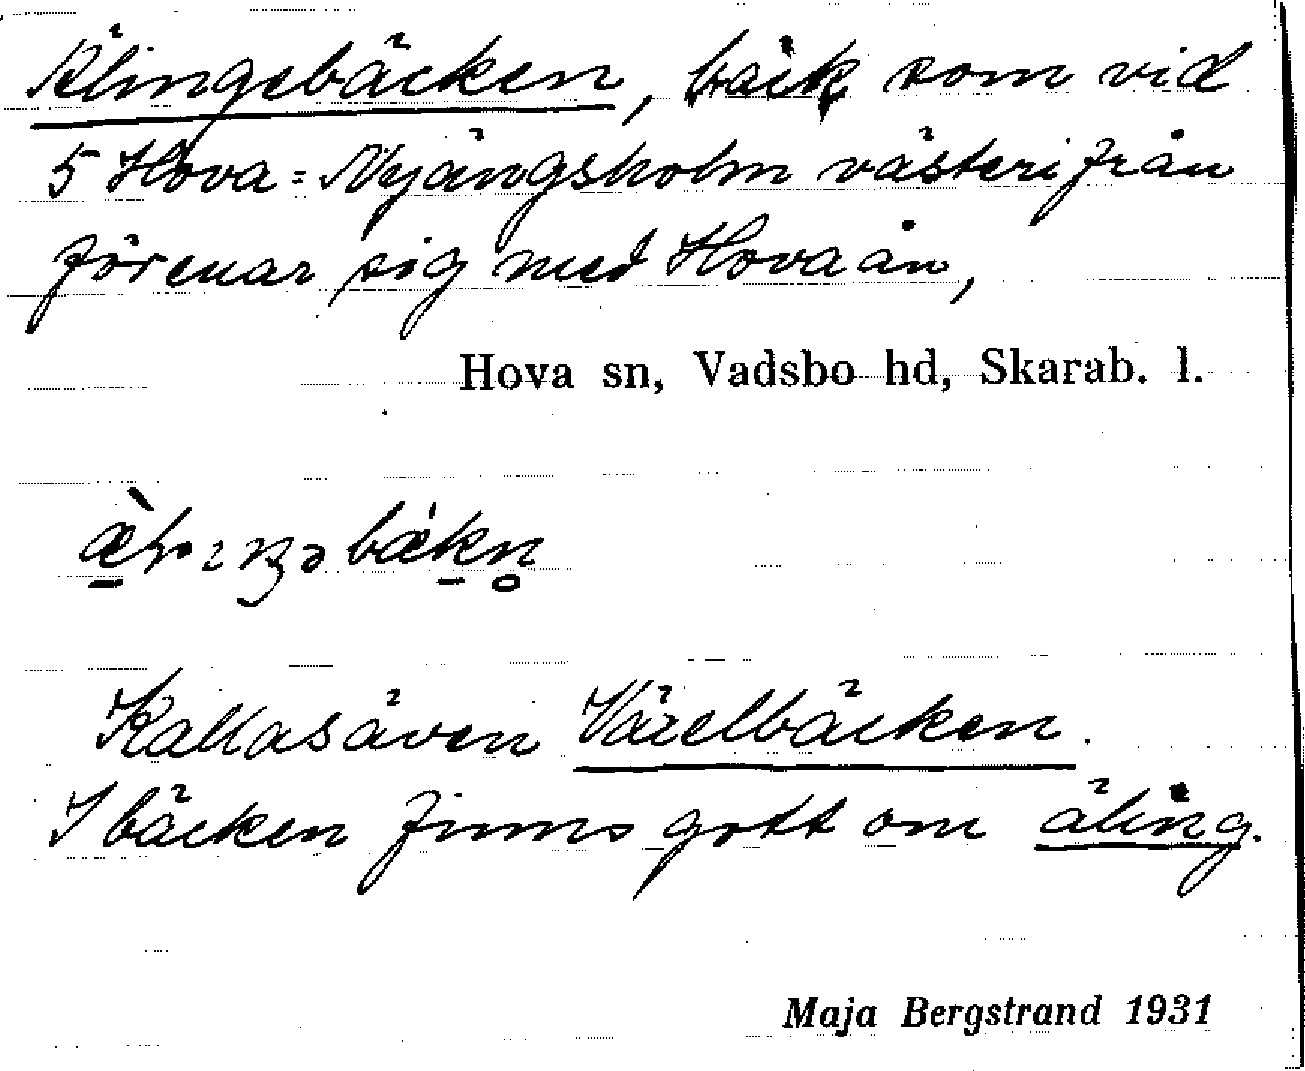 Älingebäcken, bäck som vid
5 Hova=Nyängsholm västerifrån
förenar sig med Hovaån,
Hova sn, Vadsbo hd, Skarab. l.
Kallas även Växelbäcken.
I bäcken finns gott om äling.
Maja Bergstrand 1931